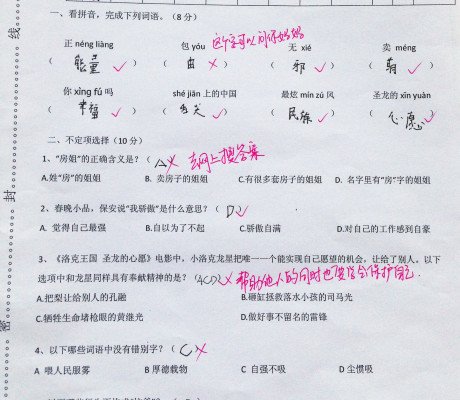 一、看拼音，完成下列词语。（8 分）
这个字可以问你妈妈
正 néng liàng 包 yóu 无 xié 卖 méng
（ 能量 ） （ 由 ） （ 邪 ） （ 萌 ）
你 xìng fú 吗 shé jiān 上的中国 最炫 mín zú 风 圣龙的 xīn yuàn
（ 幸福 ） （ 舌尖 ） （ 民族 ） （ 心愿 ）
二、不定项选择（10 分）
1、“房姐”的正确含义是？（ A ） 去网上搜答案
A.姓“房”的姐姐 B. 卖房子的姐姐 C.有很多套房子的姐姐 D. 名字里有“房”字的姐姐
2、春晚小品，保安说“我骄傲”是什么意思？（ D ）
A. 觉得自己最强 B.自以为了不起 C.骄傲自满 D.对自己的工作感到自豪
3、《洛克王国 圣龙的心愿》电影中，小洛克龙星把唯一一个能实现自己愿望的机会，让给了别人，以下
选项中和龙星同样具有奉献精神的是？（ACD） 帮助他人的同时也要学会保护自己.
A.把梨让给别人的孔融 B.砸缸拯救落水小孩的司马光
C.牺牲生命堵枪眼的黄继光 D.做好事不留名的雷锋
4、以下哪些词语中没有错别字？（ C ）
A 喂人民服雾 B 厚德载物 C 自强不吸 D 尘惯吸
线
封
密